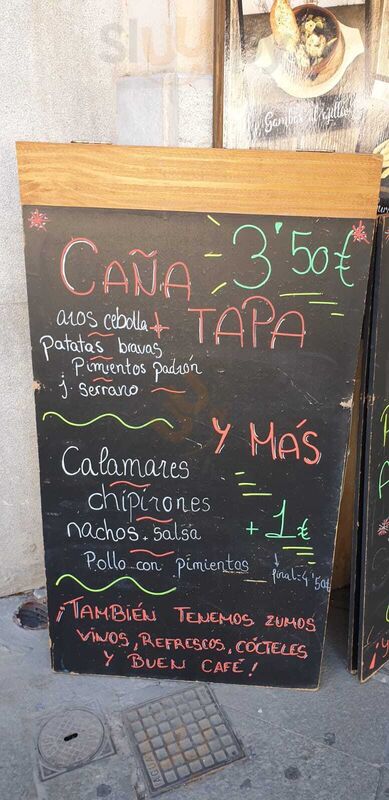 Gambas al ajillo
CAÑA 3'50€
+ TAPA
aros cebolla
patatas bravas
Pimientos padrón
j. serrano
Y MÁS
Calamares
chipirones
nachos. salsa
+1€
Pollo con pimientos
final=4'50€
¡TAMBIÉN TENEMOS ZUMOS
VINOS, REFRESCOS, CÓCTELES
Y BUEN CAFÉ!